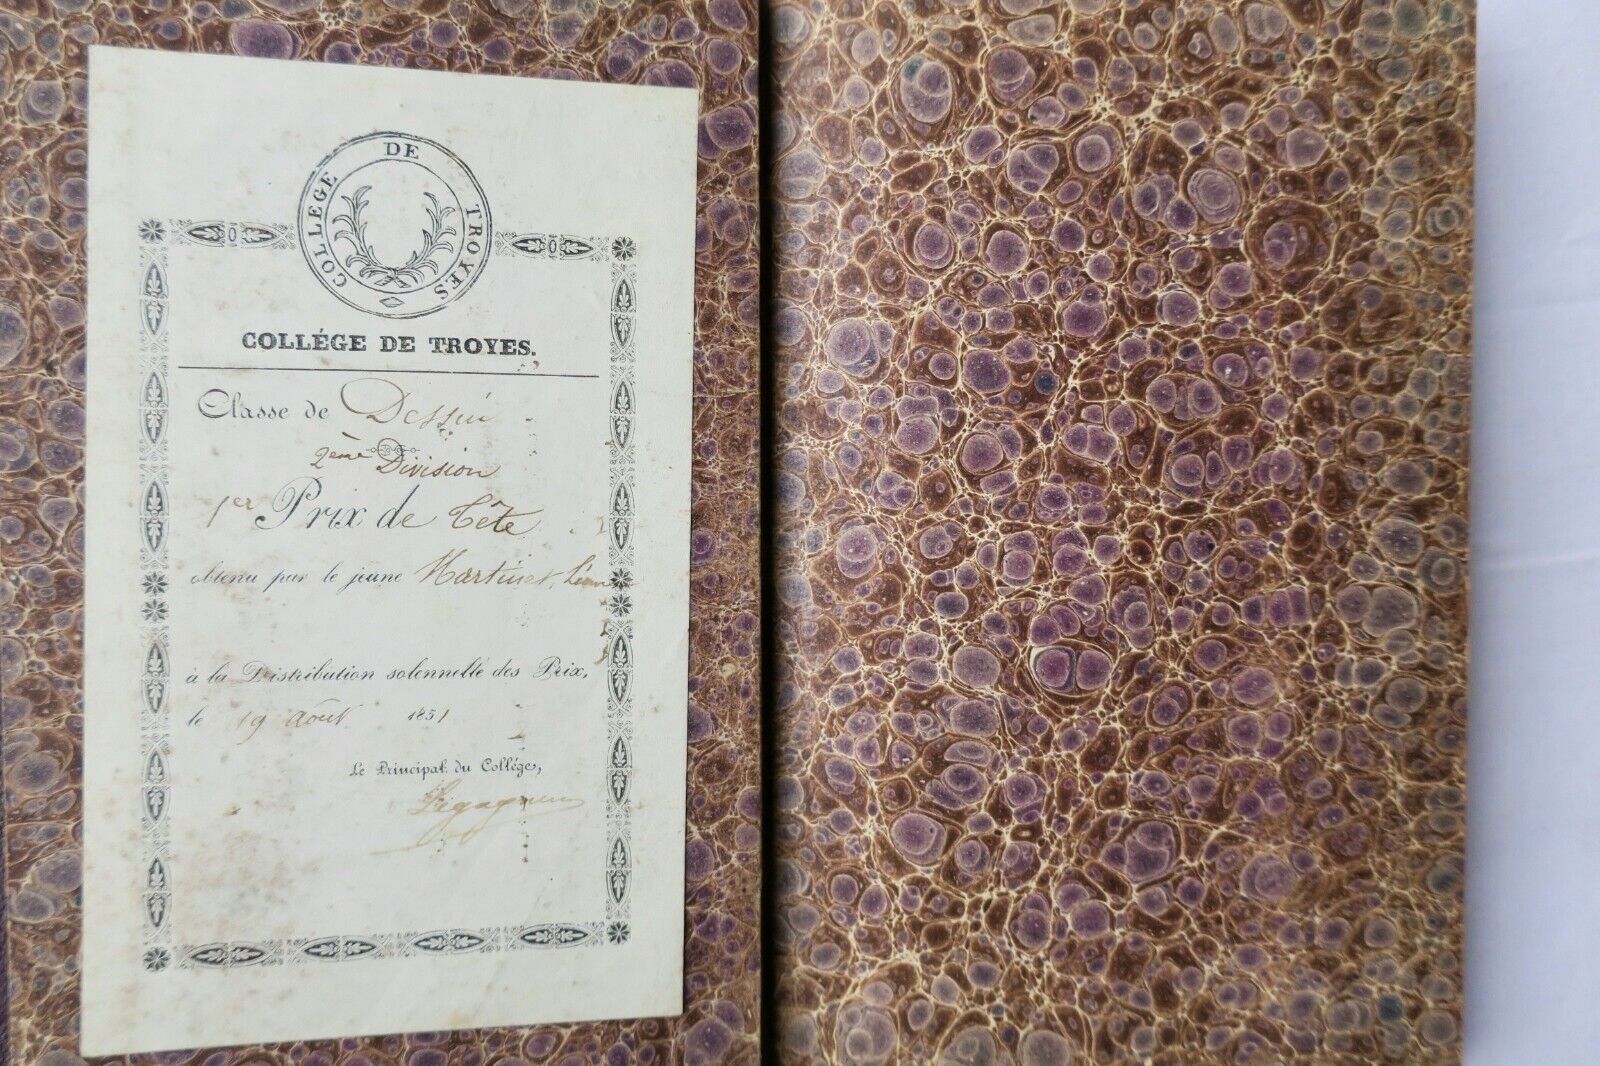 COLLEGE DE TROYES
COLLÉGE DE TROYES.
Classe de Dessin
2ème Division
1er Prix de Tête
obtenu par le jeune Martinet,
à la Distribution solennelle des Prix,
le 19 août 1851
Le Principal du Collége,